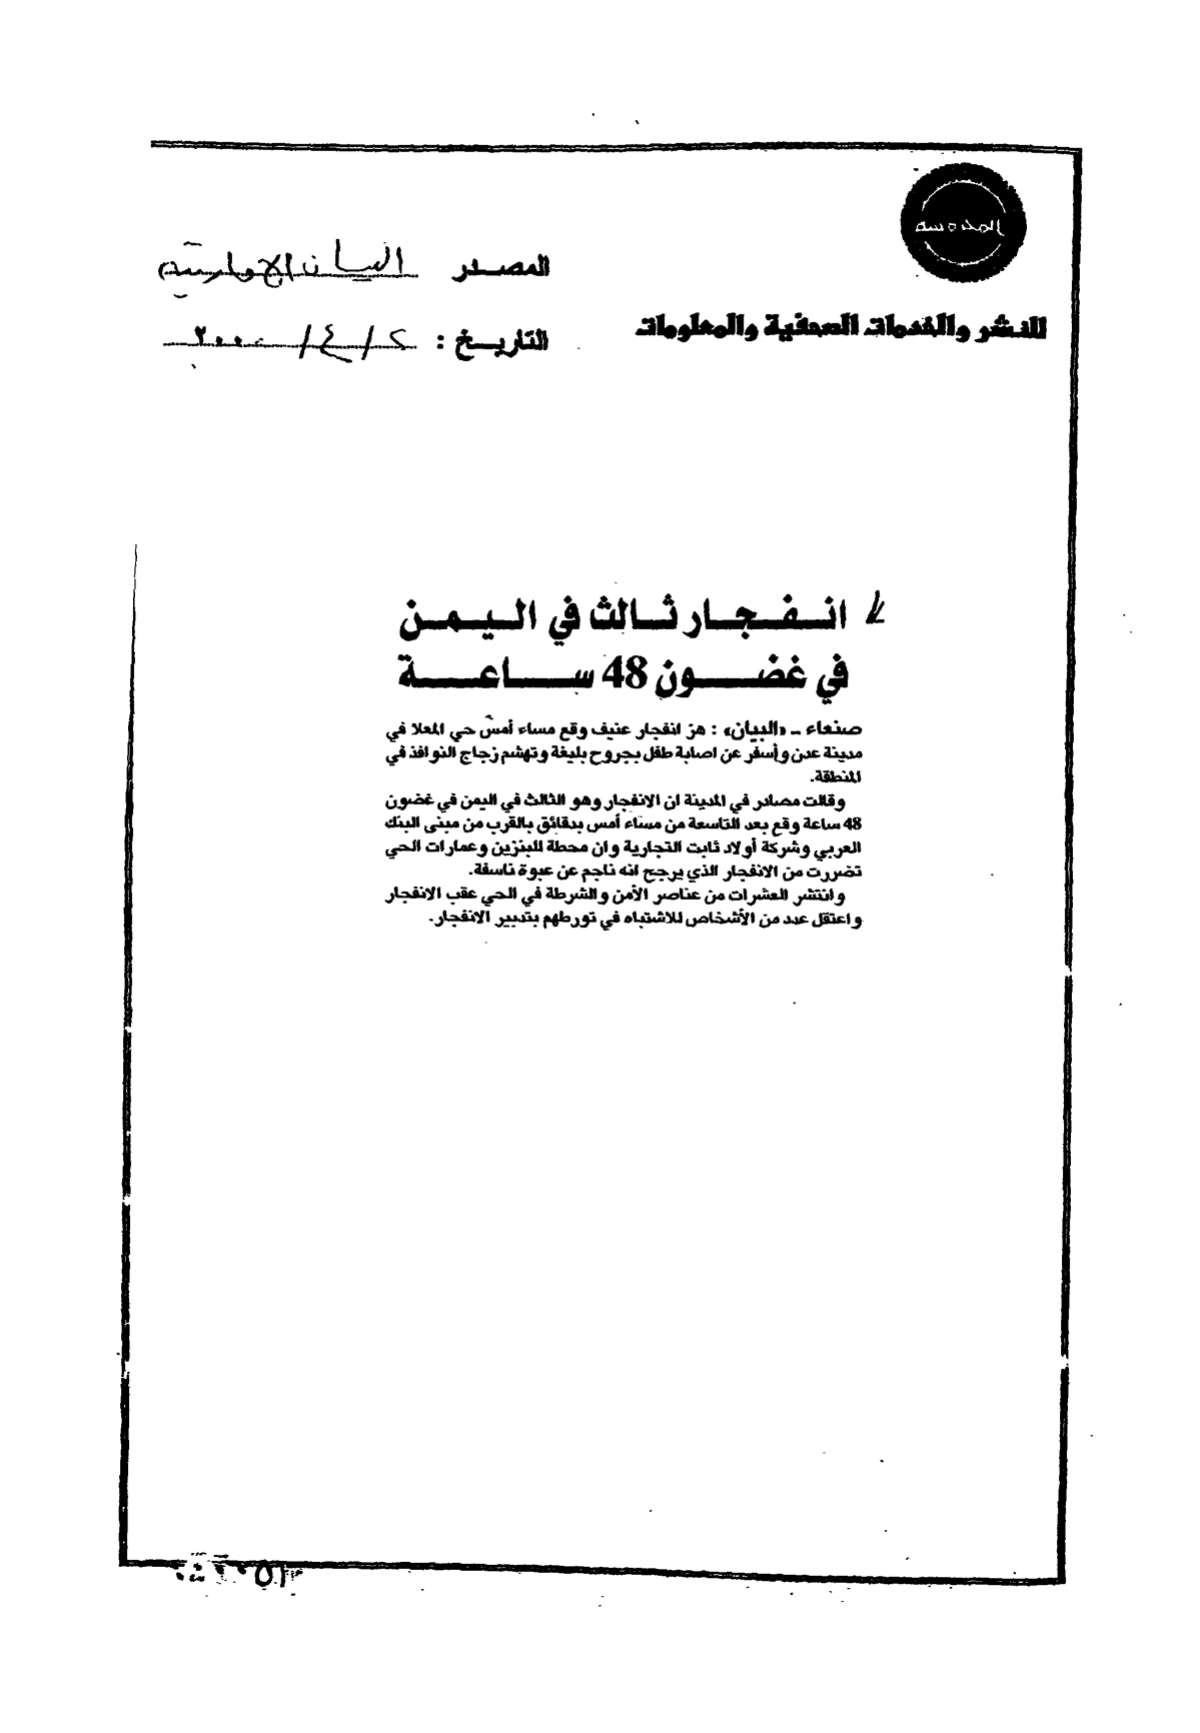 المحروسة
المصدر البيان الإماراتية
للنشر والخدمات الصحفية والمعلومات
التاريخ : ٢ / ٤ / ٢٠٠٠
انفجار ثالث في اليمن
في غضون 48 ساعة
صنعاء - «البيان» : هز انفجار عنيف وقع مساء أمس حي المعلا في
مدينة عدن وأسفر عن اصابة طفل بجروح بليغة وتهشم زجاج النوافذ في
المنطقة.
وقالت مصادر في المدينة ان الانفجار وهو الثالث في اليمن في غضون
48 ساعة وقع بعد التاسعة من مساء أمس بدقائق بالقرب من مبنى البنك
العربي وشركة أولاد ثابت التجارية وان محطة للبنزين وعمارات الحي
تضررت من الانفجار الذي يرجح انه ناجم عن عبوة ناسفة.
وانتشر العشرات من عناصر الأمن والشرطة في الحي عقب الانفجار
واعتقل عدد من الأشخاص للاشتباه في تورطهم بتدبير الانفجار.